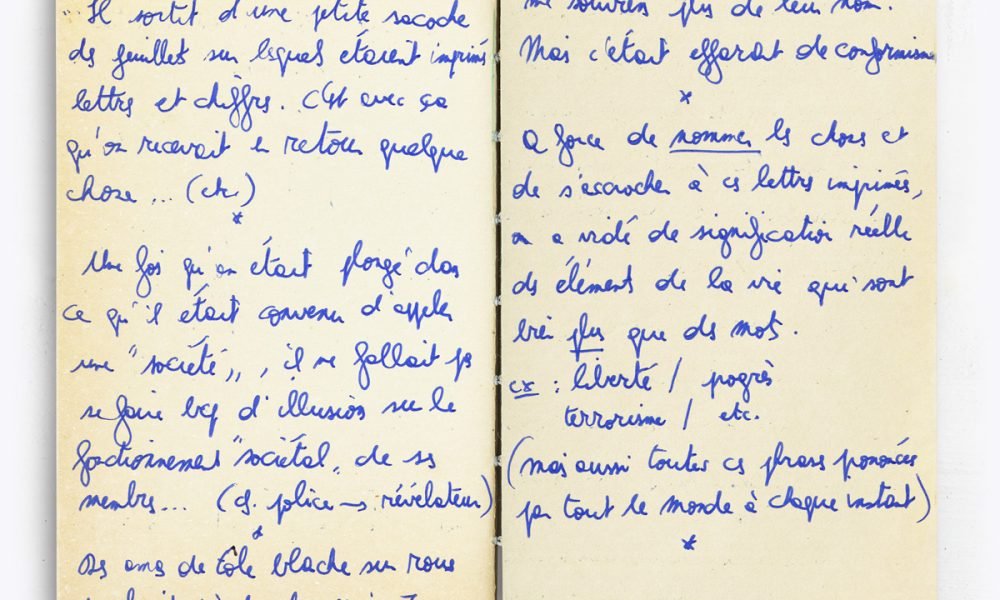 "Il sortit d'une petite sacoche
des feuillets sur lesquels étaient imprimés
lettres et chiffres. C'est avec ça
qu'on recevait en retour quelque
chose ... (etc.)
*
Une fois qu'on était plongé dans
ce qu'il était convenu d'appeler
une "société", il ne fallait pas
se faire bcp d'illusion sur le
fonctionnement "sociétal" de ses
membres... (cf. police → révélateur)
*
Des amas de tôle blache sur roues
me souviens plus de leur nom.
Mais c'était effarant de conformisme
*
A force de nommer les choses et
de s'accrocher à ces lettres imprimées,
on a vidé de signification réelle
des éléments de la vie qui sont
bien plus que des mots.
ex : liberté / pogrès
terrorisme / etc.
(mais aussi toutes ces phrases prononcées
par tout le monde à chaque instant)
*